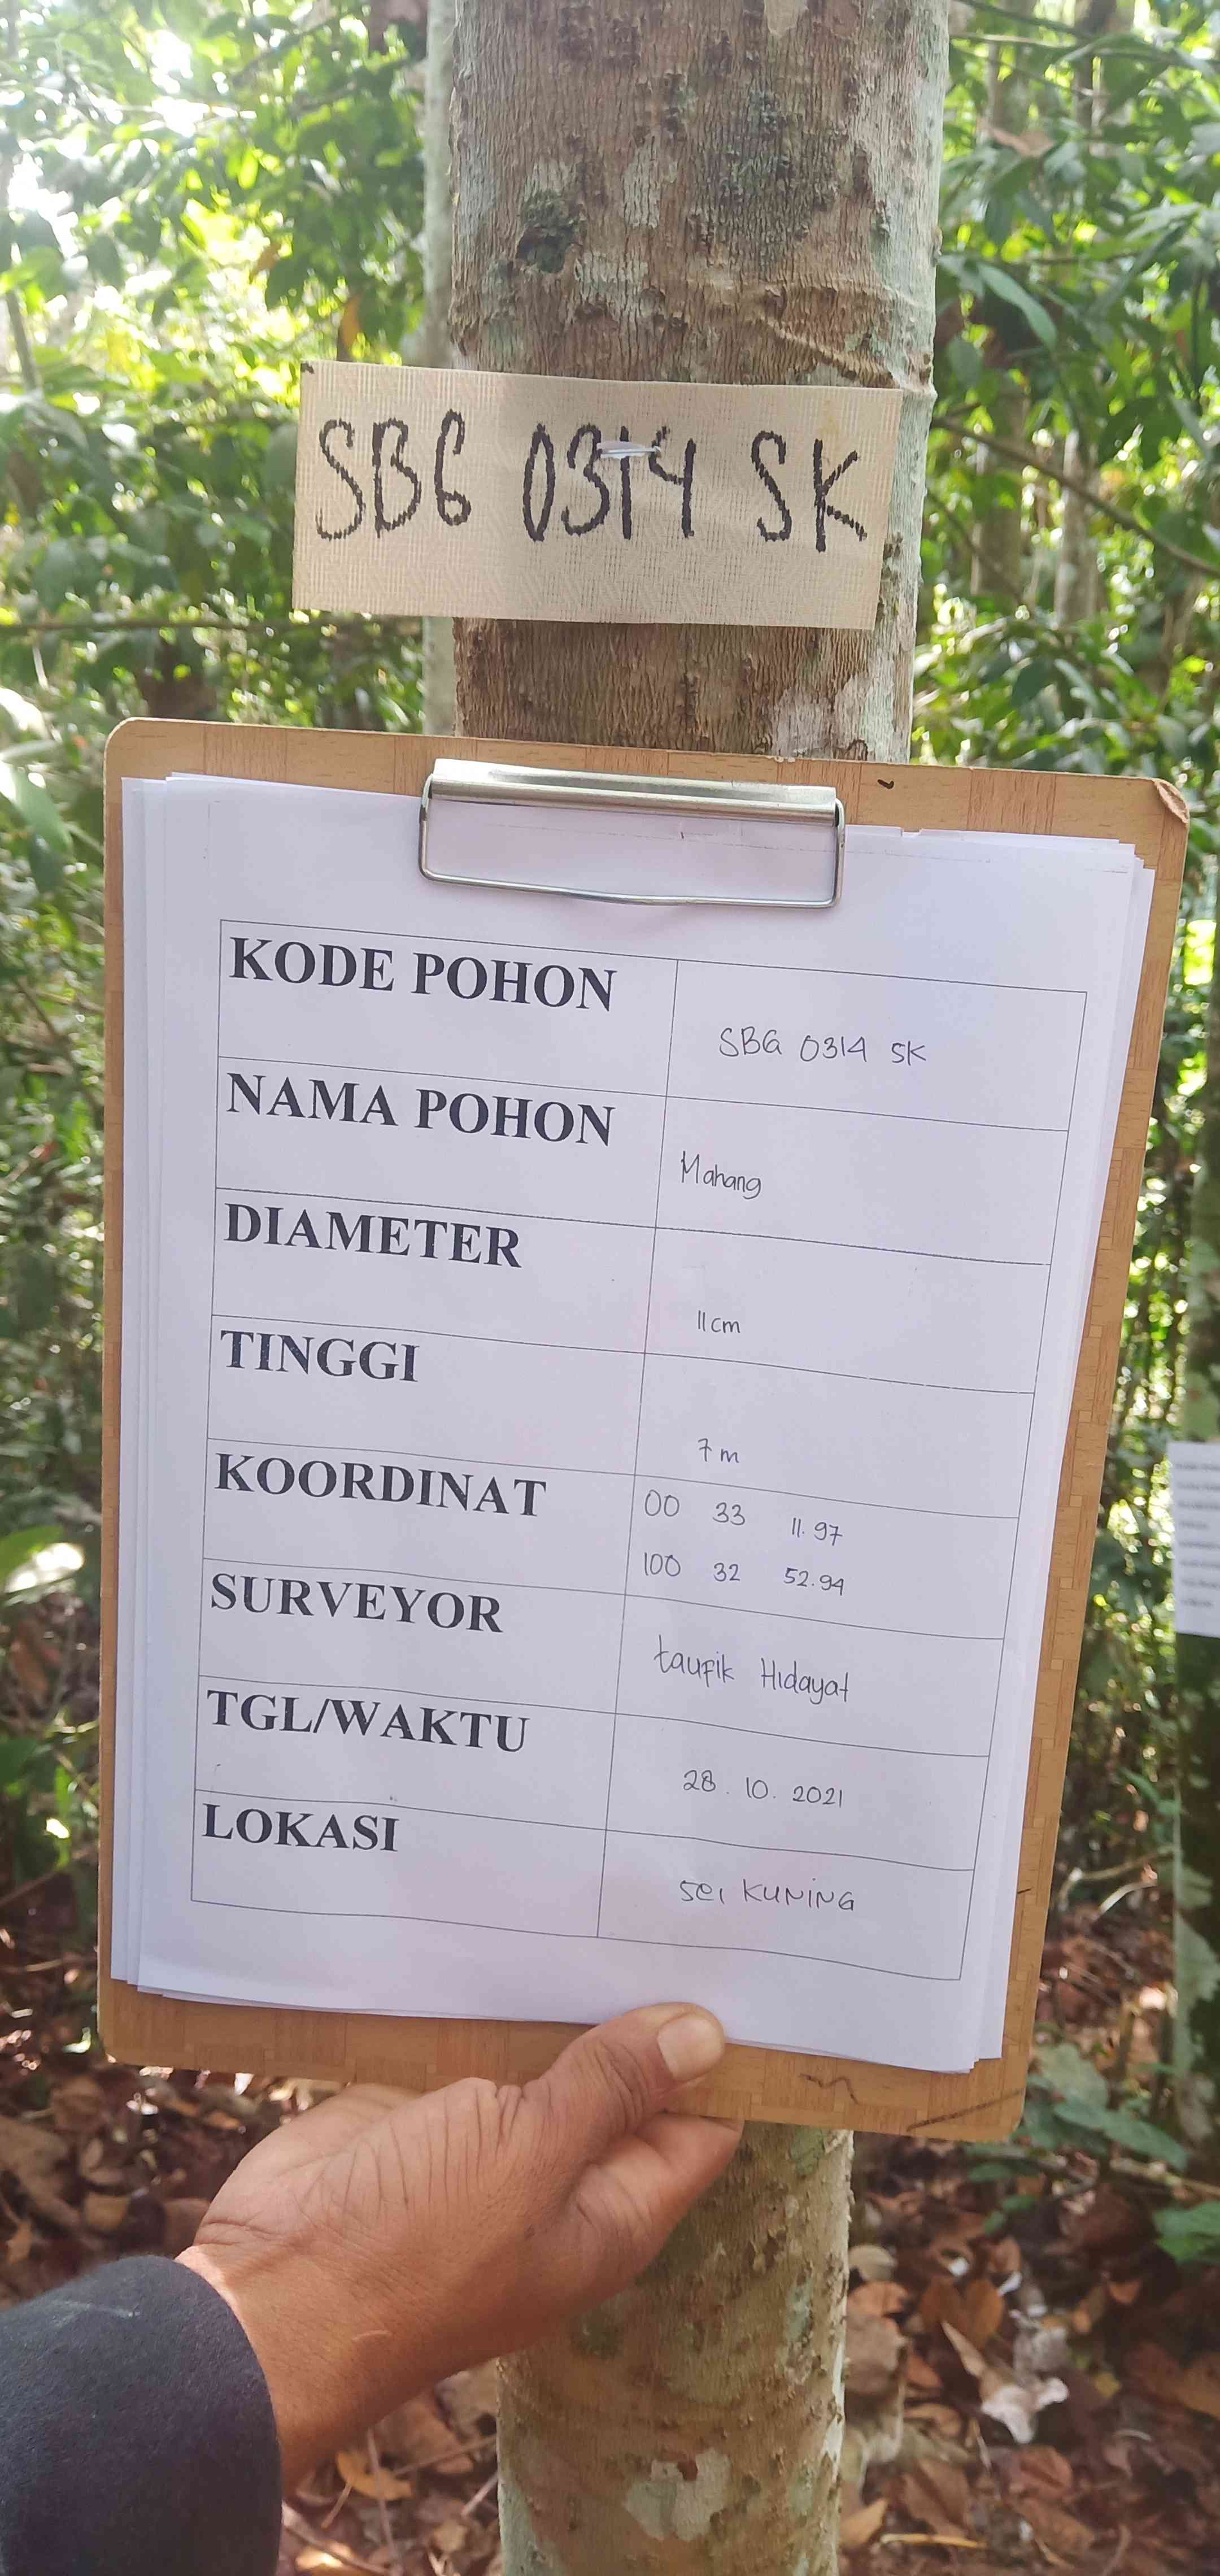 SBG 0314 SK
KODE POHON
SBG 0314 SK
NAMA POHON
Mahang
DIAMETER
11 cm
TINGGI
7 m
KOORDINAT
00 33 11.97
100 32 52.94
SURVEYOR
taufik Hidayat
TGL/WAKTU
28.10.2021
LOKASI
Sei KUNING